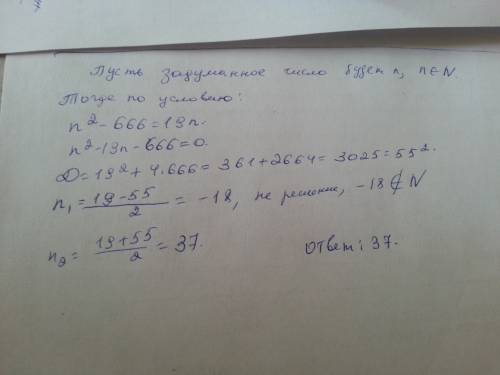 Пусть задуманное число будет n, n∈N.
Тогда по условию:
n² - 666 = 19n.
n² - 19n - 666 = 0.
D = 19² + 4·666 = 361 + 2664 = 3025 = 55².
n₁ = (19 - 55)/2 = -18, не решение, -18 ∉ N
n₂ = (19 + 55)/2 = 37. Ответ: 37.